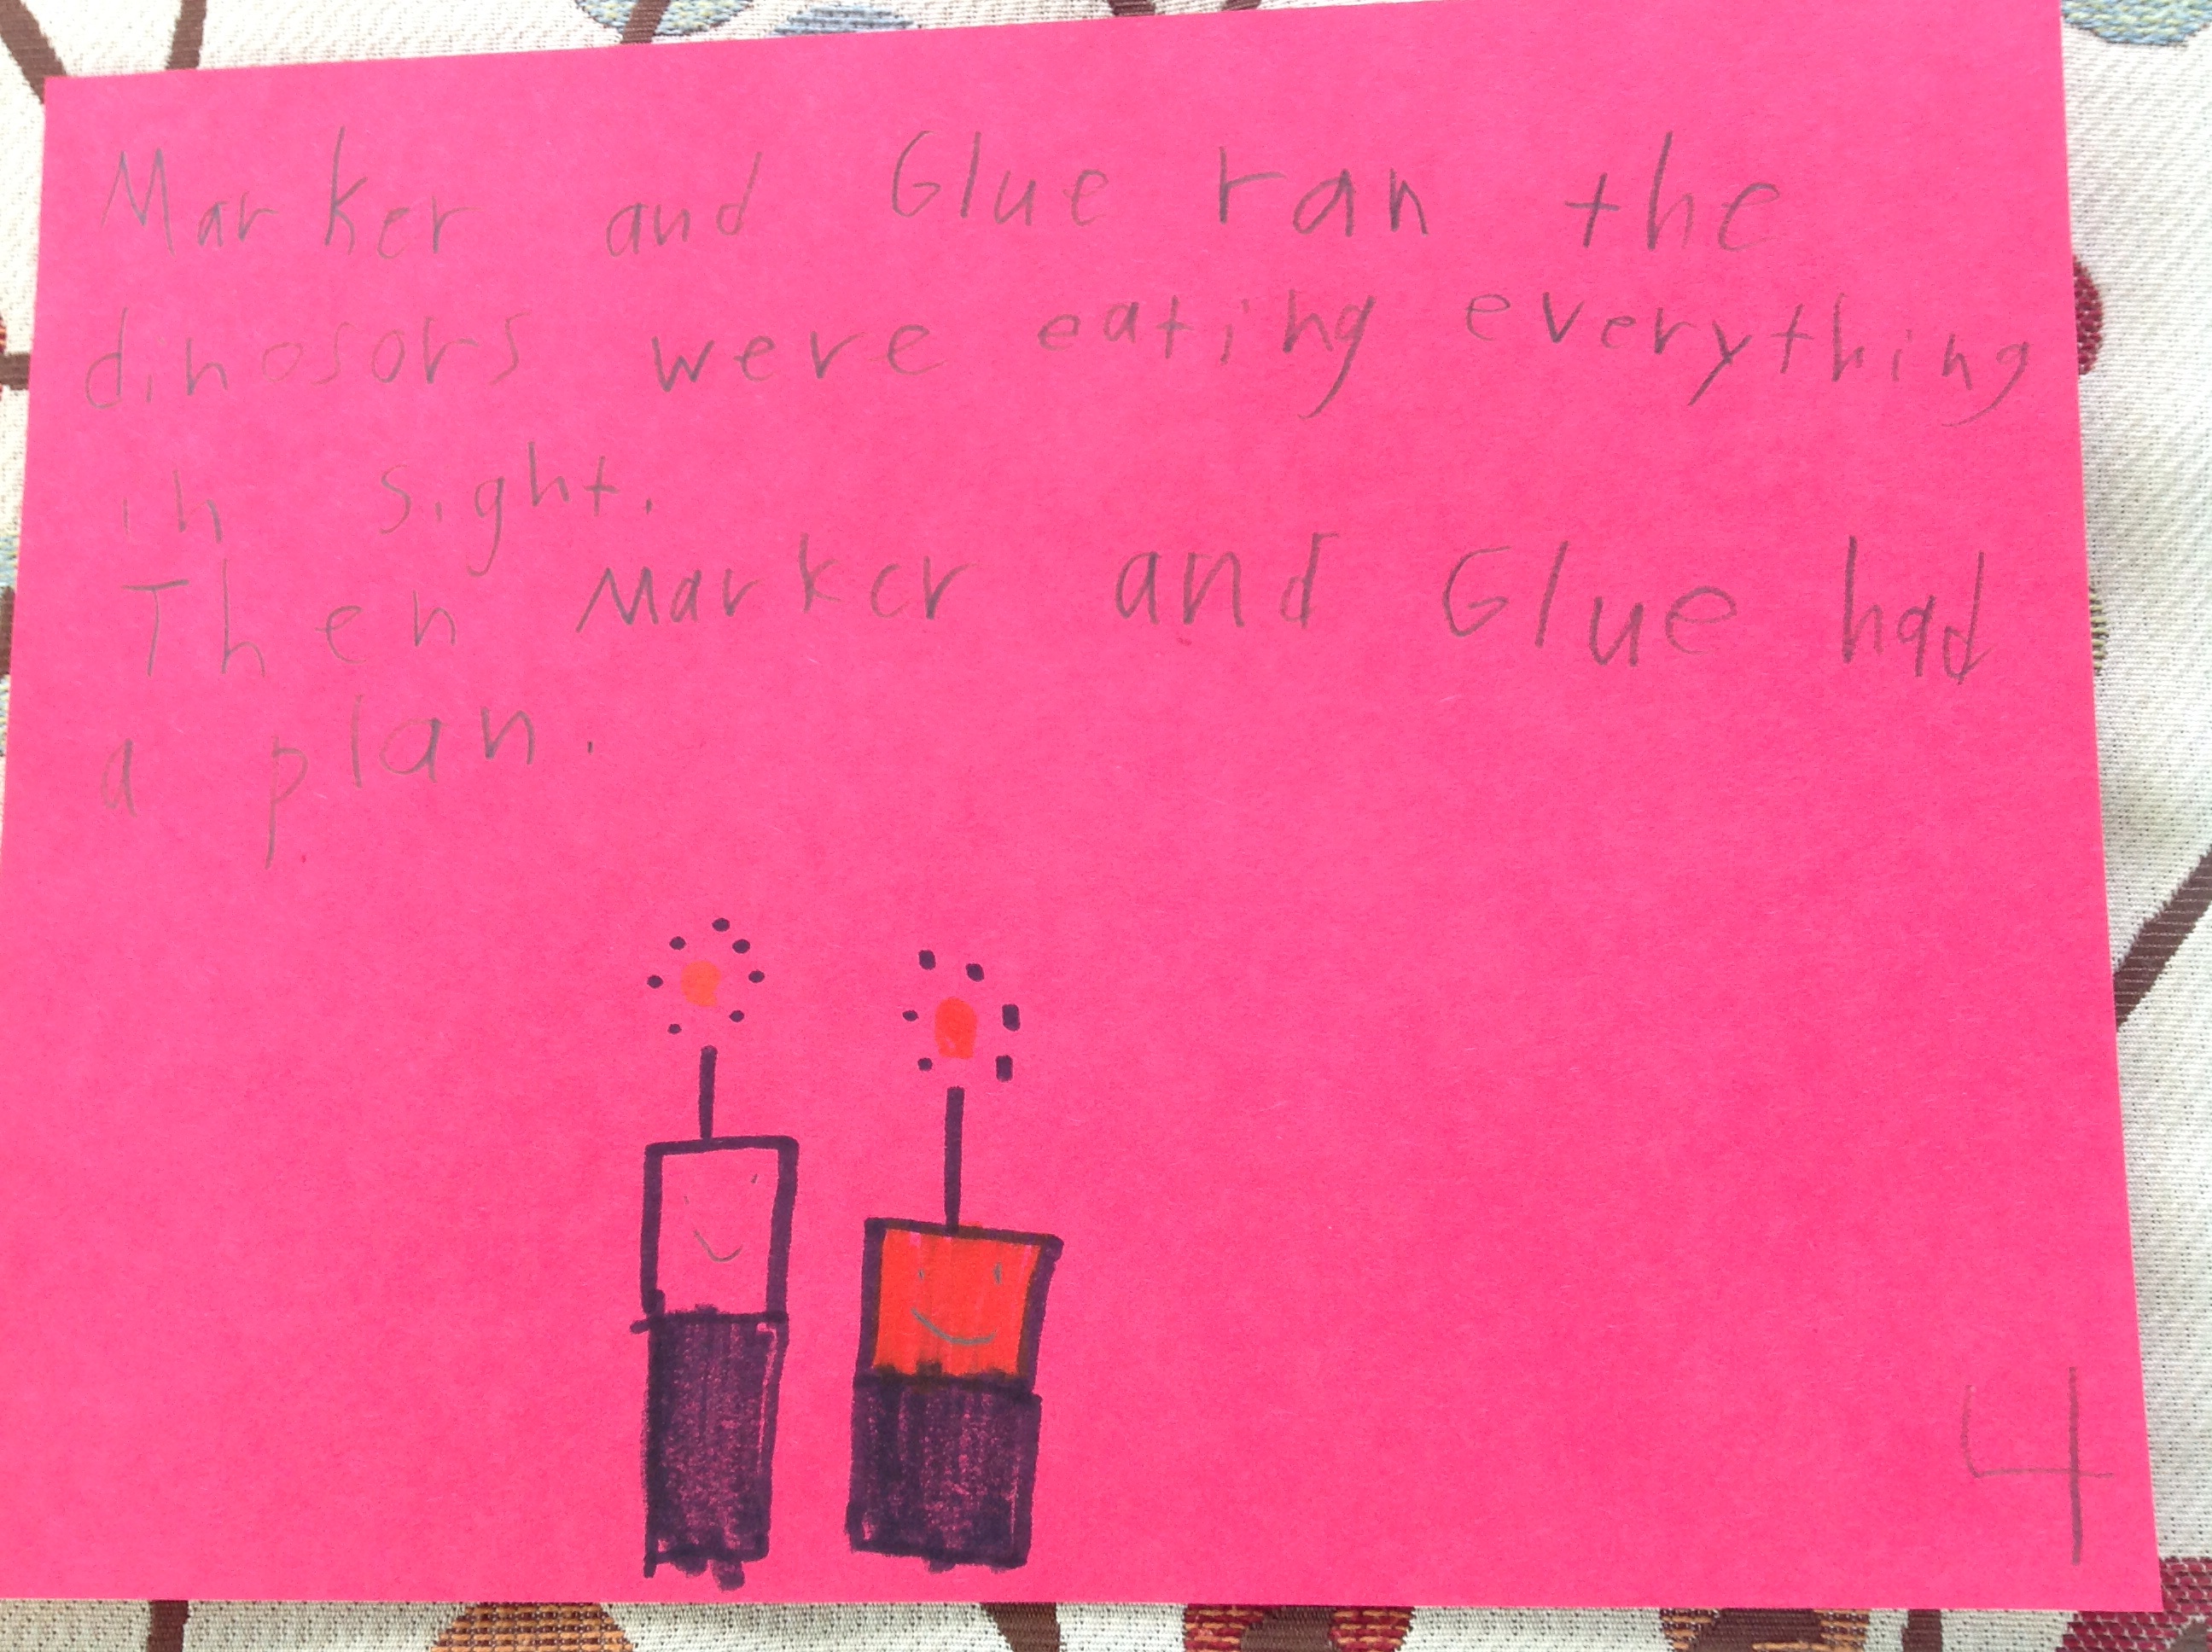 Marker and Glue ran the
dinosors were eating everything
in sight.
Then Marker and Glue had
a plan.
4